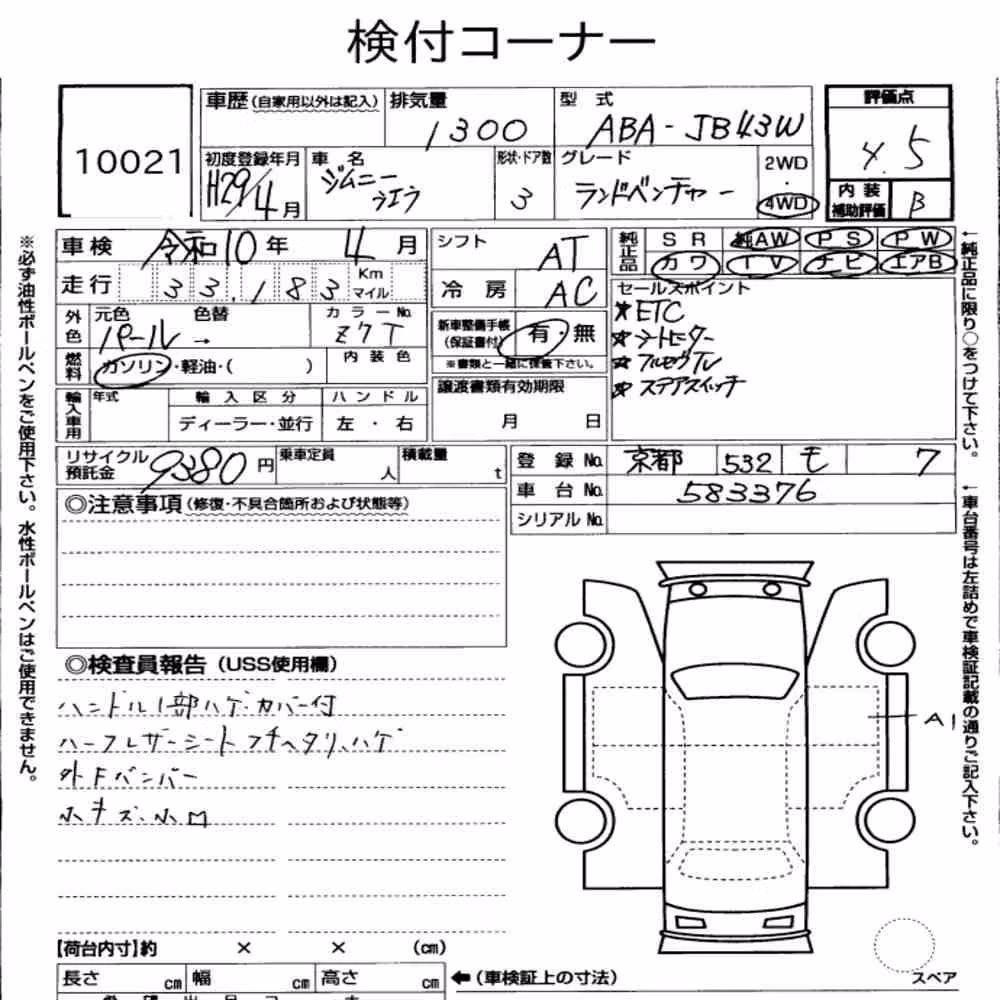 検付コーナー
10021
車歴(自家用以外は記入) 排気量 1300 型式 ABA-JB43W 評価点 4.5
初度登録年月 H29/4月 車名 ジムニー シエラ 形状・ドア数 3 グレード ランドベンチャー 2WD・4WD 内装補助評価 B
車検 令和10年 4月 シフト AT 純正品 SR 純AW PS PW
カワ TV ナビ エアB
走行 33,183 Km マイル 冷房 AC セールスポイント
外色 元色 パール 色替 → カラーNo. Z7T 新車整備手帳(保証書付) 有・無
※書類と一緒に保管下さい。
★ETC
★シートヒーター
★フルセグTV
★ステアスイッチ
燃料 ガソリン・軽油・( ) 内装色 譲渡書類有効期限 月 日
輸入車用 年式 輸入区分 ディーラー・並行 ハンドル 左・右
リサイクル預託金 9380円 乗車定員 人 積載量 t 登録No. 京都 532 モ 7
車台No. 583376
シリアルNo.
◎注意事項(修復・不具合箇所および状態等)
◎検査員報告(USS使用欄)
ハンドル1部ハゲ・カバー付
ハーフレザーシートフチヘタリ、ハゲ
外Fバンパー
小キズ、小凹
A1
スペア
【荷台内寸】約 × × (cm)
長さ cm 幅 cm 高さ cm ←(車検証上の寸法)
※必ず油性ボールペンをご使用下さい。水性ボールペンはご使用できません。
←純正品に限り○をつけて下さい。
←車台番号は左詰めで車検証記載の通りご記入下さい。